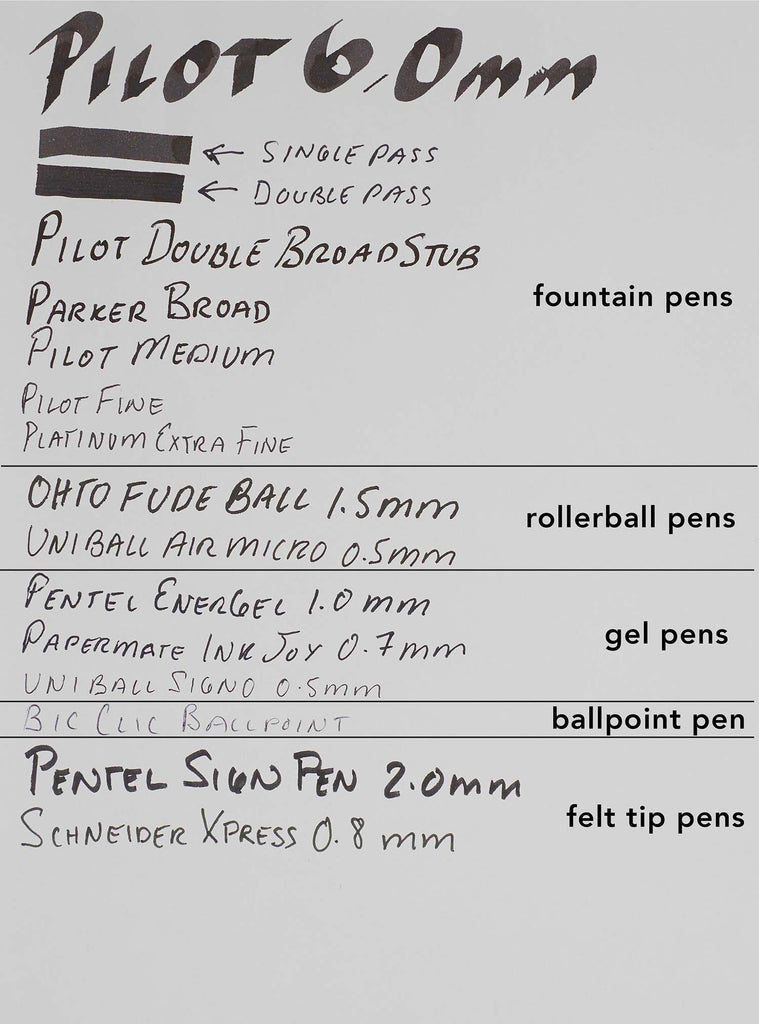 PILOT 6.0mm
← SINGLE PASS
← DOUBLE PASS
PILOT DOUBLE BROAD STUB
fountain pens
PARKER BROAD
PILOT MEDIUM
PILOT FINE
PLATINUM EXTRA FINE
OHTO FUDE BALL 1.5mm
rollerball pens
UNIBALL AIR MICRO 0.5mm
PENTEL ENERGEL 1.0 mm
gel pens
PAPERMATE INK JOY 0.7mm
UNIBALL SIGNO 0.5mm
BIC CLIC BALLPOINT
ballpoint pen
PENTEL SIGN PEN 2.0mm
felt tip pens
SCHNEIDER XPRESS 0.8 mm